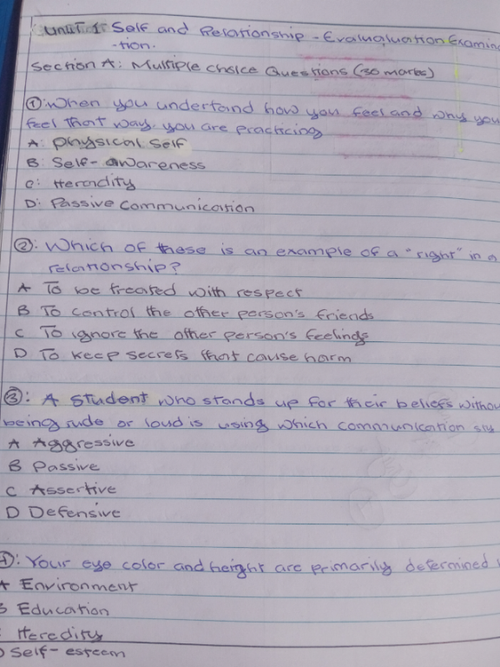 Unit 1: Self and Relationship - Evalugluation Examina
-tion.
Section A: Multiple choice Questions (30 marks)
①: When you understand how you feel and why you
feel that way. you are practicing
A: Physical Self
B: Self-awareness
C: Heradity
D: Passive communication
②: Which of these is an example of a "right" in a
relationship?
A To be treated with respect
B To control the other person's friends
C To ignore the other person's feelings
D To keep secrets that cause harm
③: A student who stands up for their beliefs withou
being rude or loud is using which communication sty
A Aggressive
B Passive
C Assertive
D Defensive
④: Your eye color and height are primarily determined
A Environment
B Education
: Heredity
D Self-esteem